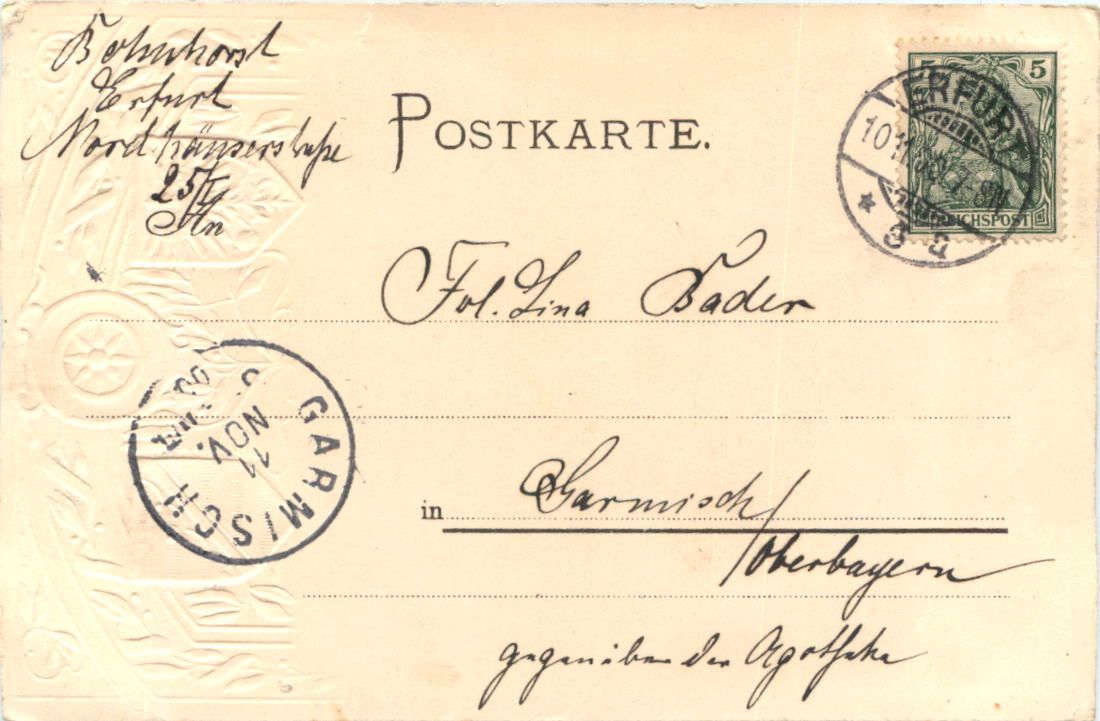 Bohnhorst
Erfurt
Nordhäuserstraße
25 I
POSTKARTE.
5 5
REICHSPOST
ERFURT
10.11.
3 a
Frl. Lina Bader
GARMISCH
11 NOV.
in Garmisch/
Oberbayern
gegenüber der Apotheke